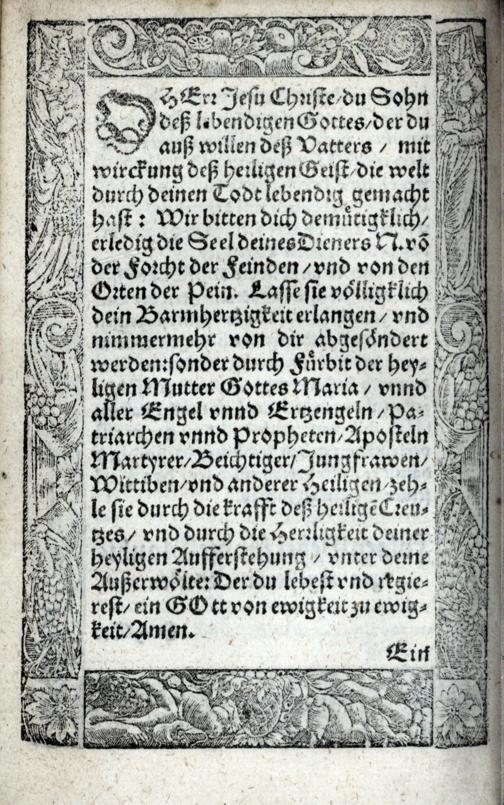 O HErr Jesu Christe/du Sohn
deß lebendigen Gottes/der du
auß willen deß Vatters / mit
wirckung deß heiligen Geist/die welt
durch deinen Todt lebendig gemacht
hast : Wir bitten dich demuͤtigklich/
erledig die Seel deines Dieners N. võ
der Forcht der Feinden / vnd von den
Orten der Pein. Lasse sie voͤlligklich
dein Barmhertzigkeit erlangen / vnd
nimmermehr von dir abgesoͤndert
werden: sonder durch Fuͤrbit der hey-
ligen Mutter Gottes Maria / vnnd
aller Engel vnnd Ertzengeln / Pa-
triarchen vnnd Propheten/Aposteln
Martyrer/Beichtiger/Jungfrawen/
Wittiben/vnd anderer Heiligen/zeh-
le sie durch die krafft deß heiligẽ Creu-
tzes / vnd durch die Herrligkeit deiner
heyligen Aufferstehung / vnter deine
Außerwoͤlte: Der du lebest vnd regie-
rest/ein GOtt von ewigkeit zu ewig-
keit/Amen.
Ein